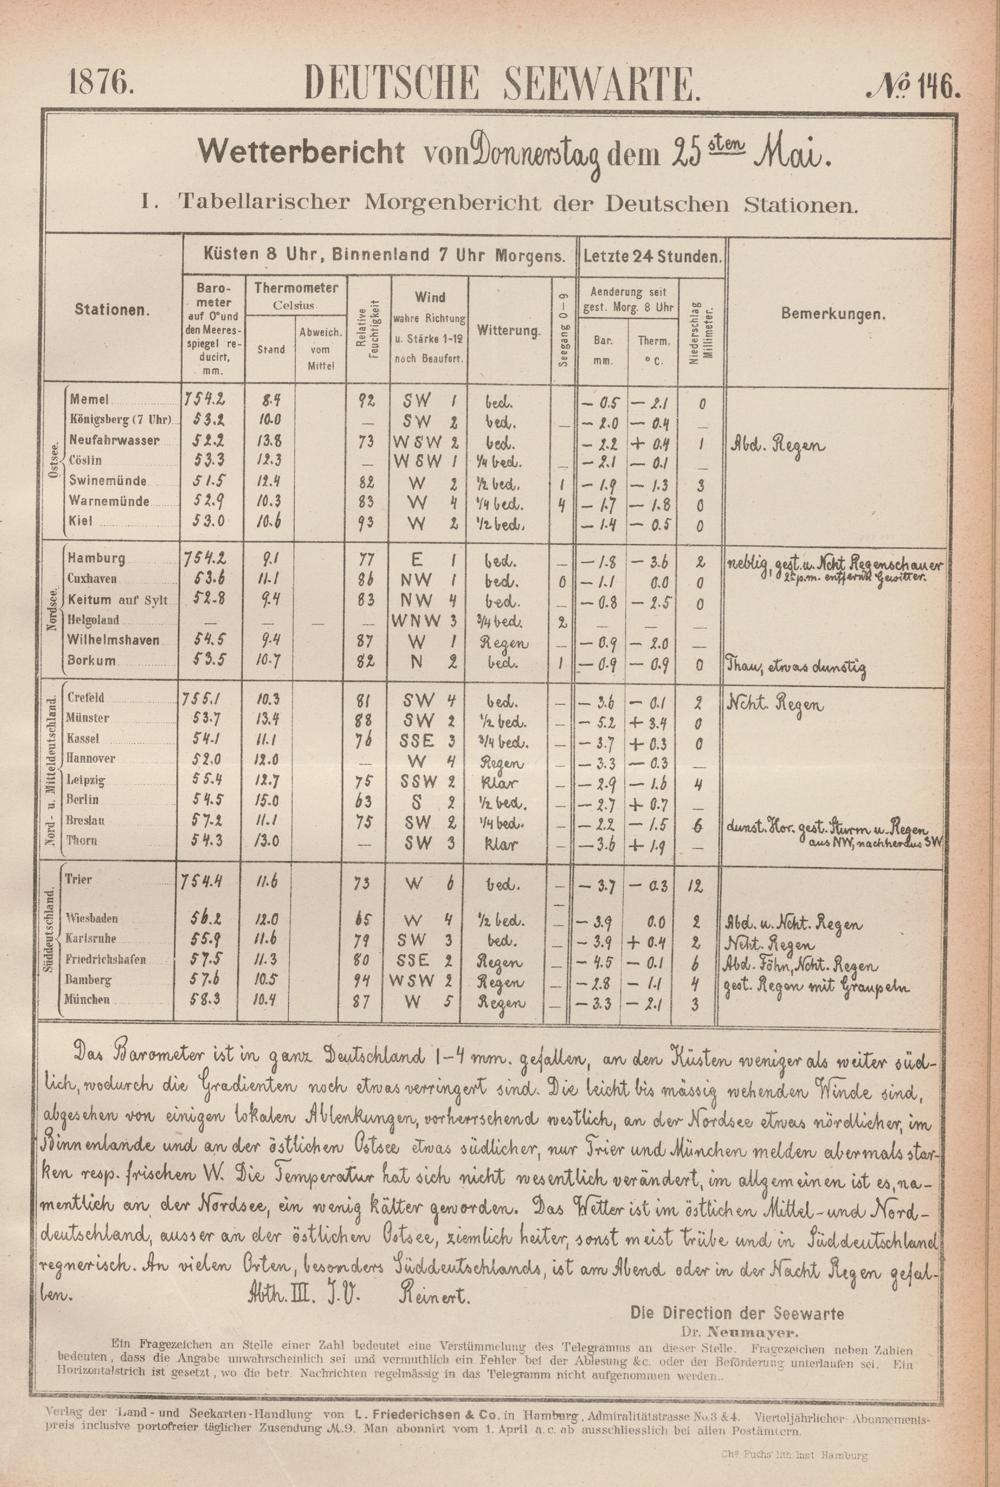 1876. DEUTSCHE SEEWARTE. No. 146.
Wetterbericht von Donnerstag dem 25sten Mai.
I. Tabellarischer Morgenbericht der Deutschen Stationen.
Stationen.
Küsten 8 Uhr, Binnenland 7 Uhr Morgens.
Letzte 24 Stunden.
Bemerkungen.
Barometer auf 0° und den Meeresspiegel reducirt, mm.
Thermometer Celsius
Stand
Abweich. vom Mittel
Relative Feuchtigkeit
Wind wahre Richtung u. Stärke 1-12 nach Beaufort.
Witterung.
Seegang 0-9
Aenderung seit gest. Morg. 8 Uhr
Bar. mm.
Therm. °C.
Niederschlag Millimeter.
Ostsee.
Memel 754.2 8.4 92 SW 1 bed. — 0.5 — 2.1 0
Königsberg (7 Uhr) 53.2 10.0 — SW 2 bed. — — 2.0 — 0.4 —
Neufahrwasser 52.2 13.8 73 WSW 2 bed. — 2.2 + 0.4 1 Abd. Regen
Cöslin 53.3 12.3 — WSW 1 1/4 bed. — — 2.1 — 0.1 —
Swinemünde 51.5 12.4 82 W 2 1/2 bed. 1 — 1.9 — 1.3 3
Warnemünde 52.9 10.3 83 W 4 1/4 bed. 4 — 1.7 — 1.8 0
Kiel 53.0 10.6 93 W 2 1/2 bed. — 1.4 — 0.5 0
Nordsee.
Hamburg 754.2 9.1 77 E 1 bed. — — 1.8 — 3.6 2 neblig, gest. u. Ncht Regenschauer
Cuxhaven 53.6 11.1 86 NW 1 bed. 0 — 1.1 0.0 0 2h p.m. entfernt Gewitter.
Keitum auf Sylt 52.8 9.4 83 NW 4 bed. — — 0.8 — 2.5 0
Helgoland — — — — WNW 3 3/4 bed. 2 — — —
Wilhelmshaven 54.5 9.4 87 W 1 Regen — 0.9 — 2.0 —
Borkum 53.5 10.7 82 N 2 bed. 1 — 0.9 — 0.9 0 Thau, etwas dunstig
Nord- u. Mitteldeutschland.
Crefeld 755.1 10.3 81 SW 4 bed. — — 3.6 — 0.1 2 Ncht. Regen
Münster 53.7 13.4 88 SW 2 1/2 bed. — — 5.2 + 3.4 0
Kassel 54.1 11.1 76 SSE 3 3/4 bed. — — 3.7 + 0.3 0
Hannover 52.0 12.0 — W 4 Regen — — 3.3 — 0.3 —
Leipzig 55.4 12.7 75 SSW 2 klar — — 2.9 — 1.6 4
Berlin 54.5 15.0 63 S 2 1/2 bed. — — 2.7 + 0.7 —
Breslau 57.2 11.1 75 SW 2 1/4 bed. — — 2.2 — 1.5 6 dunst. Hor. gest. Sturm u. Regen
Thorn 54.3 13.0 — SW 3 klar — — 3.6 + 1.9 — aus NW, nachher aus SW
Süddeutschland.
Trier 754.4 11.6 73 W 6 bed. — — 3.7 — 0.3 12
Wiesbaden 56.2 12.0 65 W 4 1/2 bed. — — 3.9 0.0 2 Abd. u. Ncht. Regen
Karlsruhe 55.9 11.6 79 SW 3 bed. — — 3.9 + 0.4 2 Ncht. Regen
Friedrichshafen 57.5 11.3 80 SSE 2 Regen — — 4.5 — 0.1 6 Abd. Föhn, Ncht. Regen
Bamberg 57.6 10.5 94 WSW 2 Regen — — 2.8 — 1.1 4 gest. Regen mit Graupeln
München 58.3 10.4 87 W 5 Regen — — 3.3 — 2.1 3
Das Barometer ist in ganz Deutschland 1–4 mm. gefallen, an den Küsten weniger als weiter süd-
lich, wodurch die Gradienten noch etwas verringert sind. Die leicht bis mässig wehenden Winde sind,
abgesehen von einigen lokalen Ablenkungen, vorherrschend westlich, an der Nordsee etwas nördlicher, im
Binnenlande und an der östlichen Ostsee etwas südlicher, nur Trier und München melden abermals star-
ken resp. frischen W. Die Temperatur hat sich nicht wesentlich verändert, im allgemeinen ist es, na-
mentlich an der Nordsee, ein wenig kälter geworden. Das Wetter ist im östlichen Mittel- und Nord-
deutschland, ausser an der östlichen Ostsee, ziemlich heiter, sonst meist trübe und in Süddeutschland
regnerisch. An vielen Orten, besonders Süddeutschlands, ist am Abend oder in der Nacht Regen gefal-
len. Abth. III. J.V. Reinert.
Die Direction der Seewarte
Dr. Neumayer.
Ein Fragezeichen an Stelle einer Zahl bedeutet eine Verstümmelung des Telegramms an dieser Stelle. Fragezeichen neben Zahlen
bedeuten, dass die Angabe unwahrscheinlich sei und vermuthlich ein Fehler bei der Ablesung &c. oder der Beförderung unterlaufen sei. Ein
Horizontalstrich ist gesetzt, wo die betr. Nachrichten regelmässig in das Telegramm nicht aufgenommen werden..
Verlag der Land- und Seekarten-Handlung von L. Friederichsen & Co. in Hamburg, Admiralitätstrasse No. 3 & 4. Vierteljährlicher Abonnements-
preis inclusive portofreier täglicher Zusendung M. 9. Man abonnirt vom 1. April a. c. ab ausschliesslich bei allen Postämtern.
Chs Fuchs' lith. Inst Hamburg